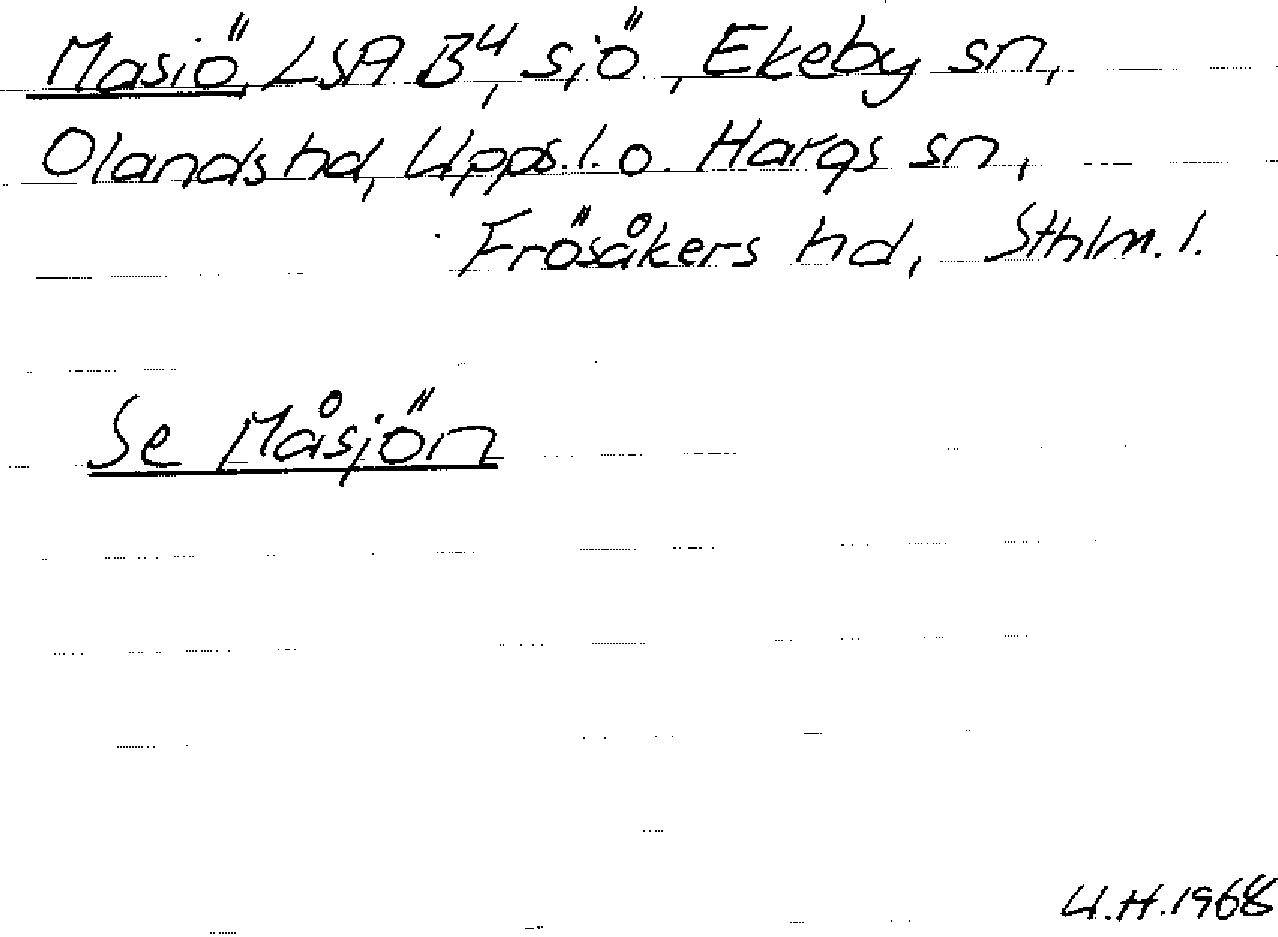 Masiö LSA B4, sjö, Ekeby sn,
Olands hd, Upps.l. o. Hargs sn,
Frösåkers hd, Sthlm.l.
Se Måsjön
U.H.1968